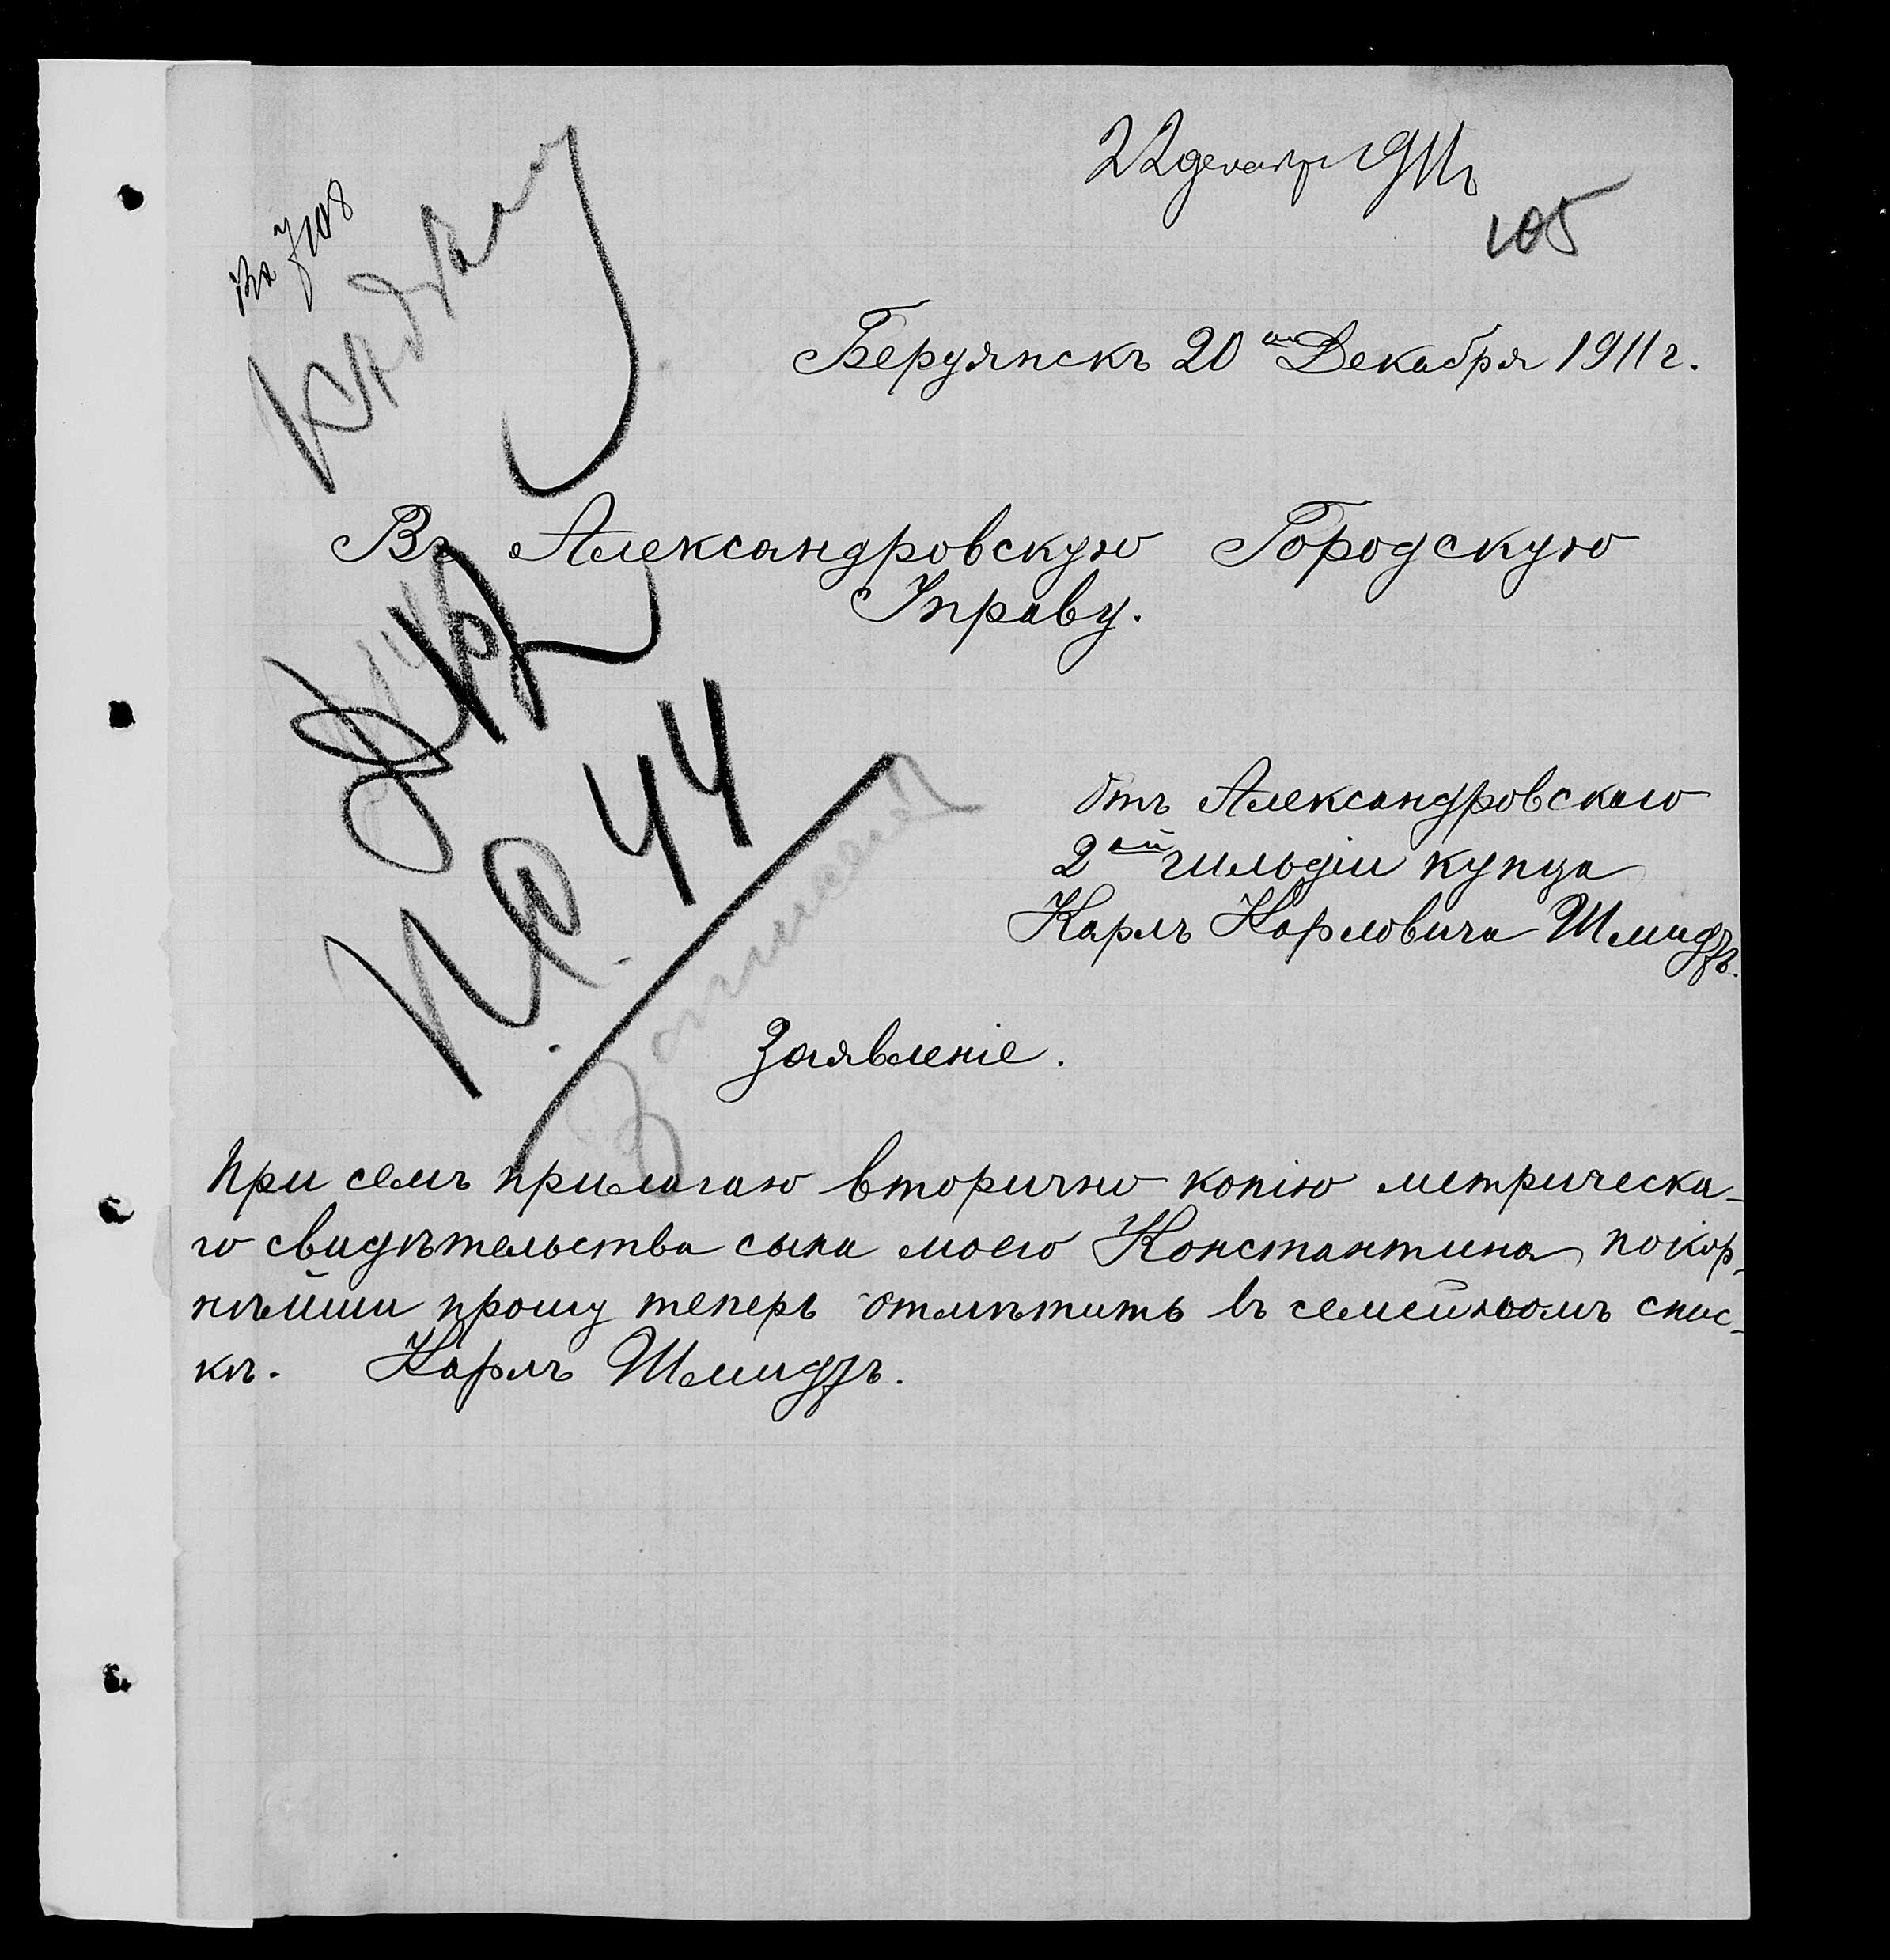 22 декабр 1911 г
105
Бердянскъ 20го Декабря 1911 г.
Въ Александровскую Городскую
Управу.
№ 44
Отъ Александровскаго
2ой гильдіи купца
Карлъ Карловича Шмидтъ.
Заявленіе.
При семъ прилагаю вторично копію метрическа-
го свидѣтельства сына моего Константина покор-
нѣйши прошу теперь отмѣтить въ семейномъ спис-
кѣ. Карлъ Шмидтъ.